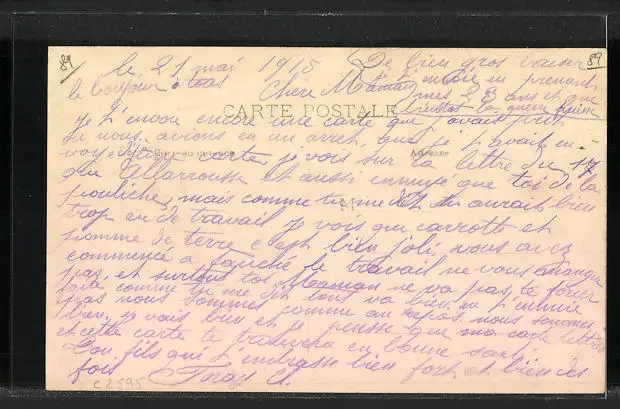 89
89
le 21 mai 1915 De bien gros baiser
le bonjour à tous Chère Maman, en prenant
mes 23 ans et que
bientôt la guerre finisse
CARTE POSTALE
Je t'envoie encore une carte que avait
je nous avions eu un arret, que je t'avait en-
voyé carte, je vois sur la lettre du 17
que Allarousse et aussi ennuyé que toi de la
mais comme tu me dit tu aurais bien
trop eu de travail je vois que carrotte et
pomme de terre c'est bien joli, vous avez
commencé a fauché le travail ne vous manque
pas, et surtout toi, Maman ne va pas te forcer
comme tu me dit tout va bien ne t'ennuie
pas nous sommes comme au repos nous sommes
bien, je vais bien et je pense que ma carte lettre
et cette carte te trouvera en bonne santé
Ton fils qui t'embrasse bien fort et bien des
fois
C 2595